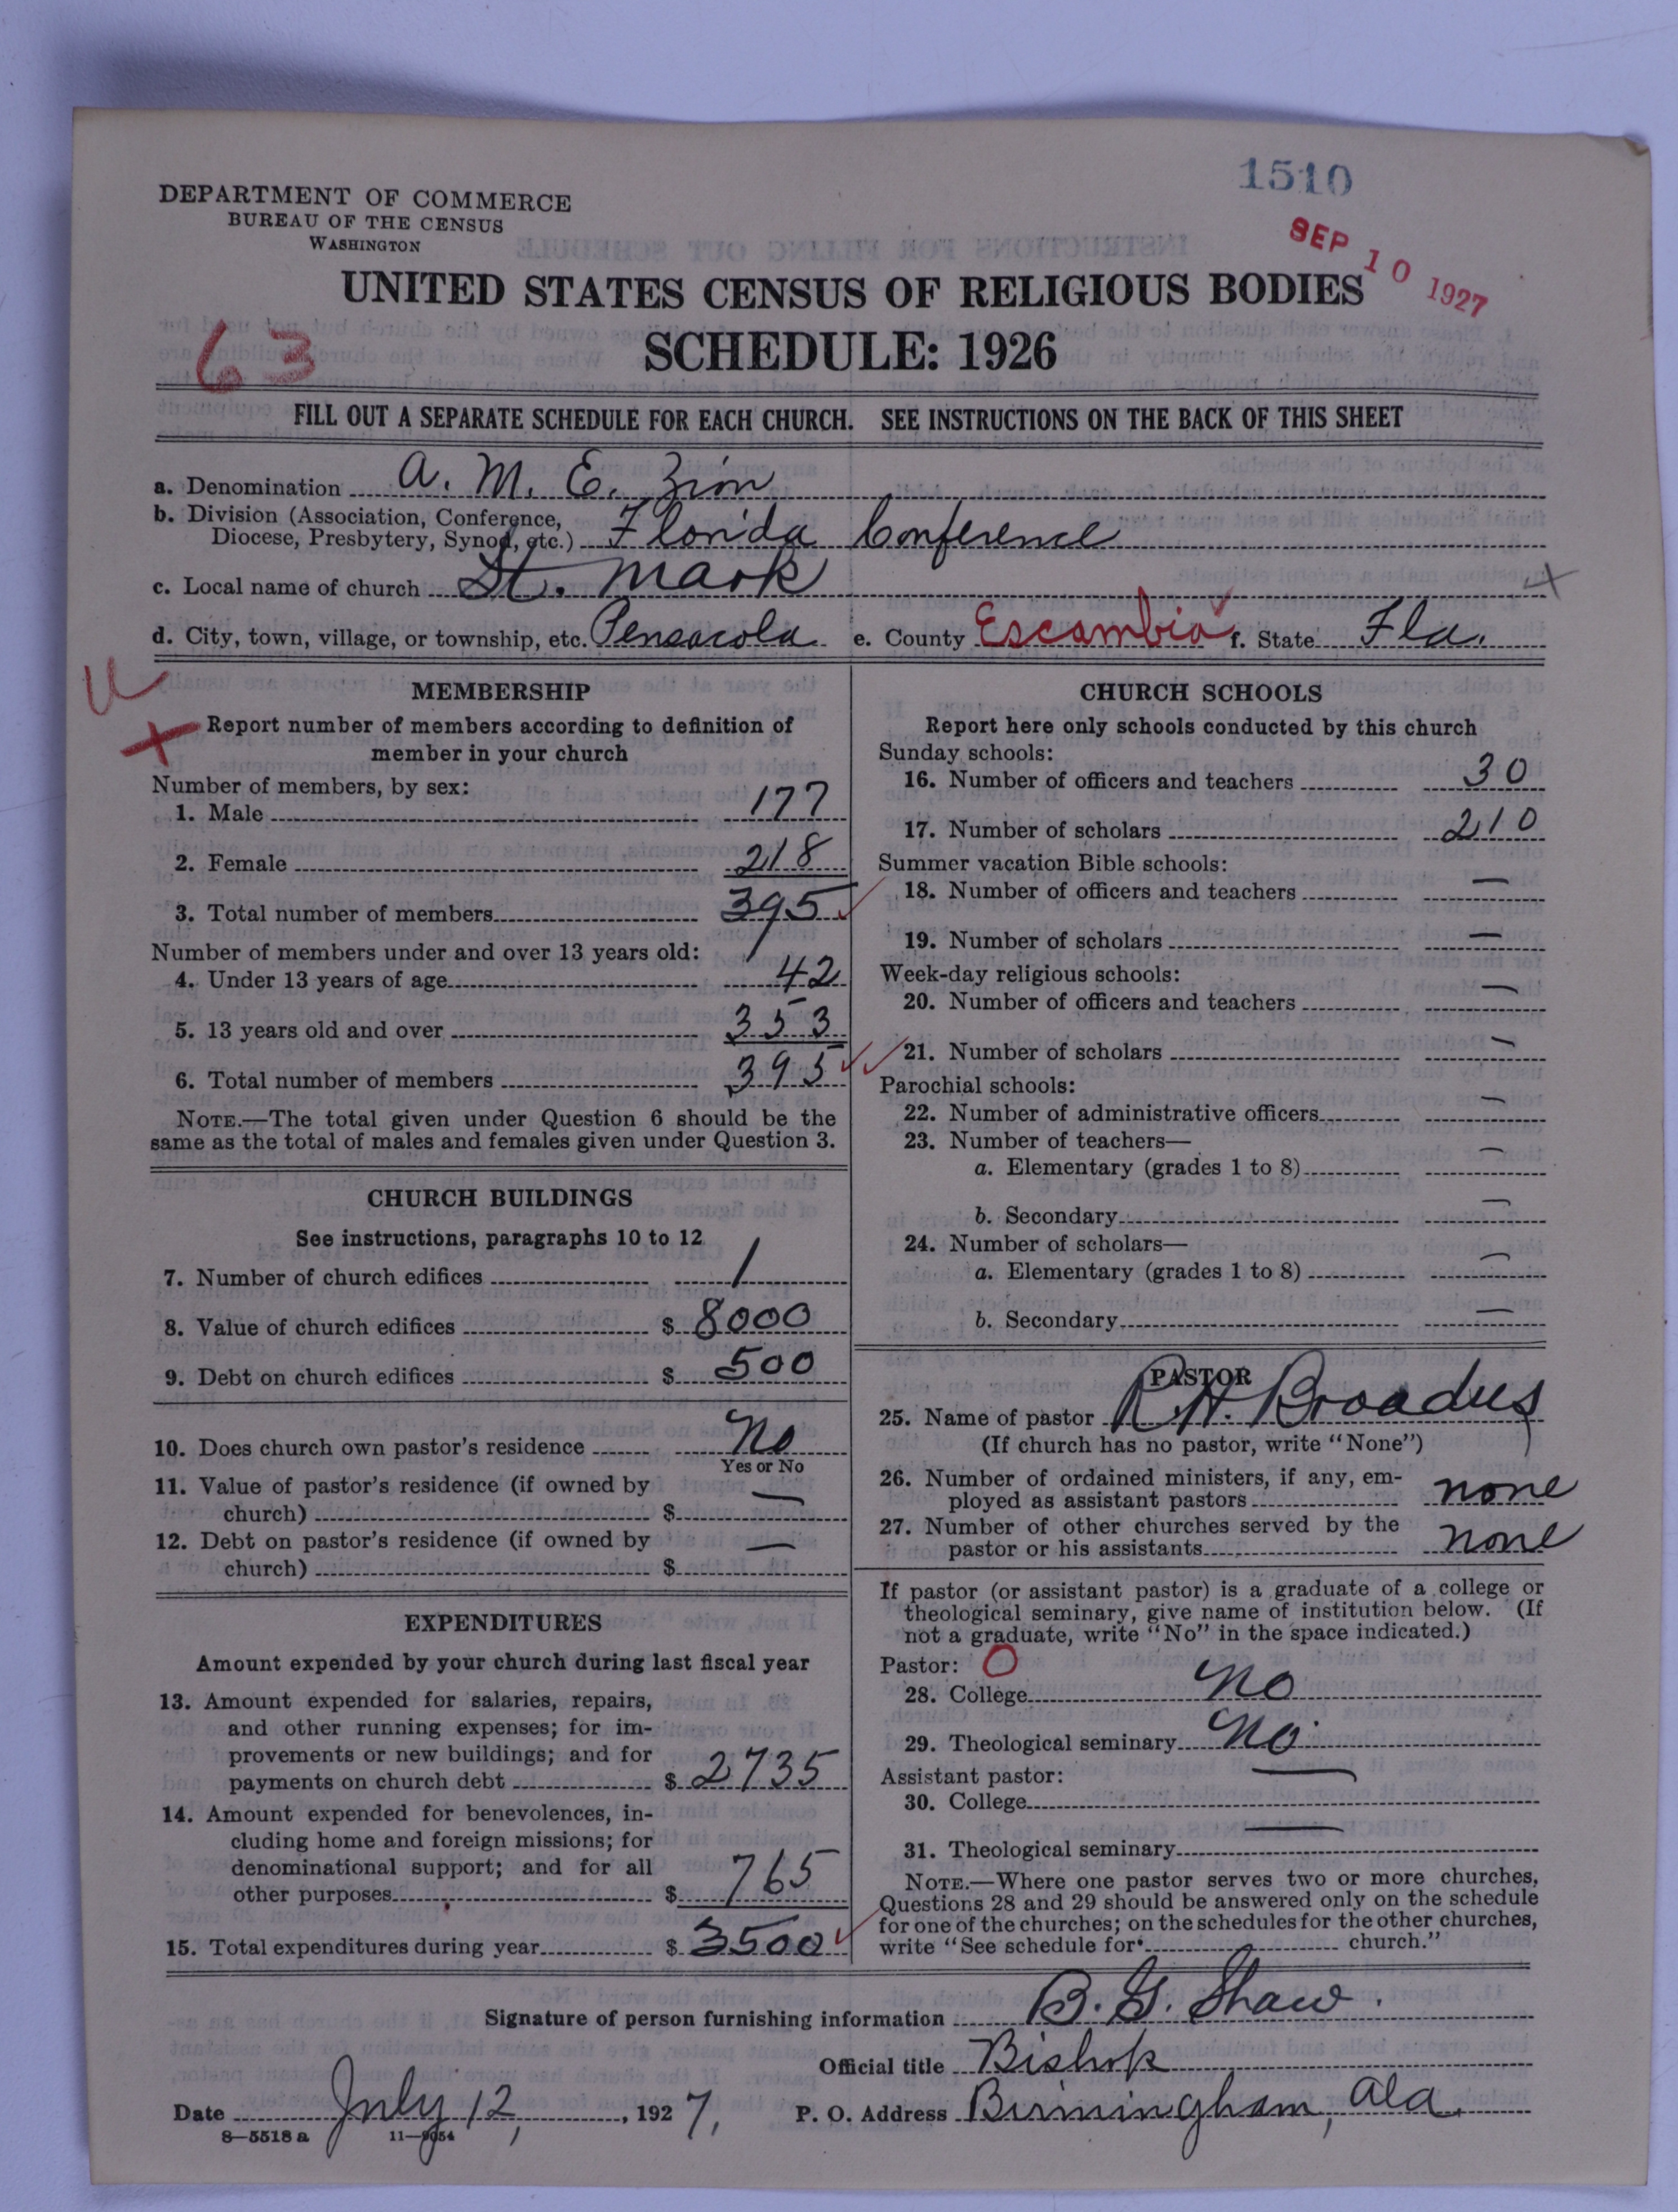 1510
SEP 10 1927
DEPARTMENT OF COMMERCE
BUREAU OF THE CENSUS
WASHINGTON
UNITED STATES CENSUS OF RELIGIOUS BODIES
SCHEDULE: 1926
63
FILL OUT A SEPARATE SCHEDULE FOR EACH CHURCH. SEE INSTRUCTIONS ON THE BACK OF THIS SHEET
a. Denomination A. M. E. Zion
b. Division (Association, Conference,
Diocese, Presbytery, Synod, etc.) Florida Conference
c. Local name of church St. Mark
d. City, town, village, or township, etc. Pensacola e. County Escambia f. State Fla.
MEMBERSHIP
Report number of members according to definition of
member in your church
Number of members, by sex:
1. Male 177
2. Female 218
3. Total number of members 395
Number of members under and over 13 years old:
4. Under 13 years of age 42
5. 13 years old and over 353
6. Total number of members 395
NOTE.—The total given under Question 6 should be the
same as the total of males and females given under Question 3.
CHURCH BUILDINGS
See instructions, paragraphs 10 to 12
7. Number of church edifices 1
8. Value of church edifices $ 8000
9. Debt on church edifices $ 500
10. Does church own pastor's residence No
Yes or No
11. Value of pastor's residence (if owned by
church) $ —
12. Debt on pastor's residence (if owned by
church) $ —
EXPENDITURES
Amount expended by your church during last fiscal year
13. Amount expended for salaries, repairs,
and other running expenses; for im-
provements or new buildings; and for
payments on church debt $ 2735
14. Amount expended for benevolences, in-
cluding home and foreign missions; for
denominational support; and for all
other purposes $ 765
15. Total expenditures during year $ 3500
CHURCH SCHOOLS
Report here only schools conducted by this church
Sunday schools:
16. Number of officers and teachers 30
17. Number of scholars 210
Summer vacation Bible schools:
18. Number of officers and teachers —
19. Number of scholars —
Week-day religious schools:
20. Number of officers and teachers —
21. Number of scholars —
Parochial schools:
22. Number of administrative officers —
23. Number of teachers—
a. Elementary (grades 1 to 8) —
b. Secondary —
24. Number of scholars—
a. Elementary (grades 1 to 8) —
b. Secondary —
PASTOR
25. Name of pastor R. H. Broadus
(If church has no pastor, write "None")
26. Number of ordained ministers, if any, em-
ployed as assistant pastors none
27. Number of other churches served by the
pastor or his assistants none
If pastor (or assistant pastor) is a graduate of a college or
theological seminary, give name of institution below. (If
not a graduate, write "No" in the space indicated.)
Pastor: O
28. College No
29. Theological seminary No
Assistant pastor:
30. College —
31. Theological seminary —
NOTE.—Where one pastor serves two or more churches,
Questions 28 and 29 should be answered only on the schedule
for one of the churches; on the schedules for the other churches,
write "See schedule for church."
Signature of person furnishing information B. G. Shaw.
Official title Bishop
Date July 12, 1927, P. O. Address Birmingham, Ala.
8—5518 a 11—9054